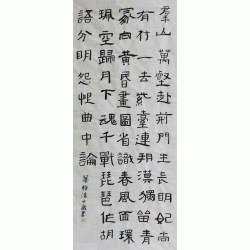 羣山萬壑赴荊門生長明妃尚
有村一去紫臺連朔漠獨留青
冢向黃昏畫圖省識春風面環
珮空歸月下魂千載琵琶作胡
語分明怨恨曲中論